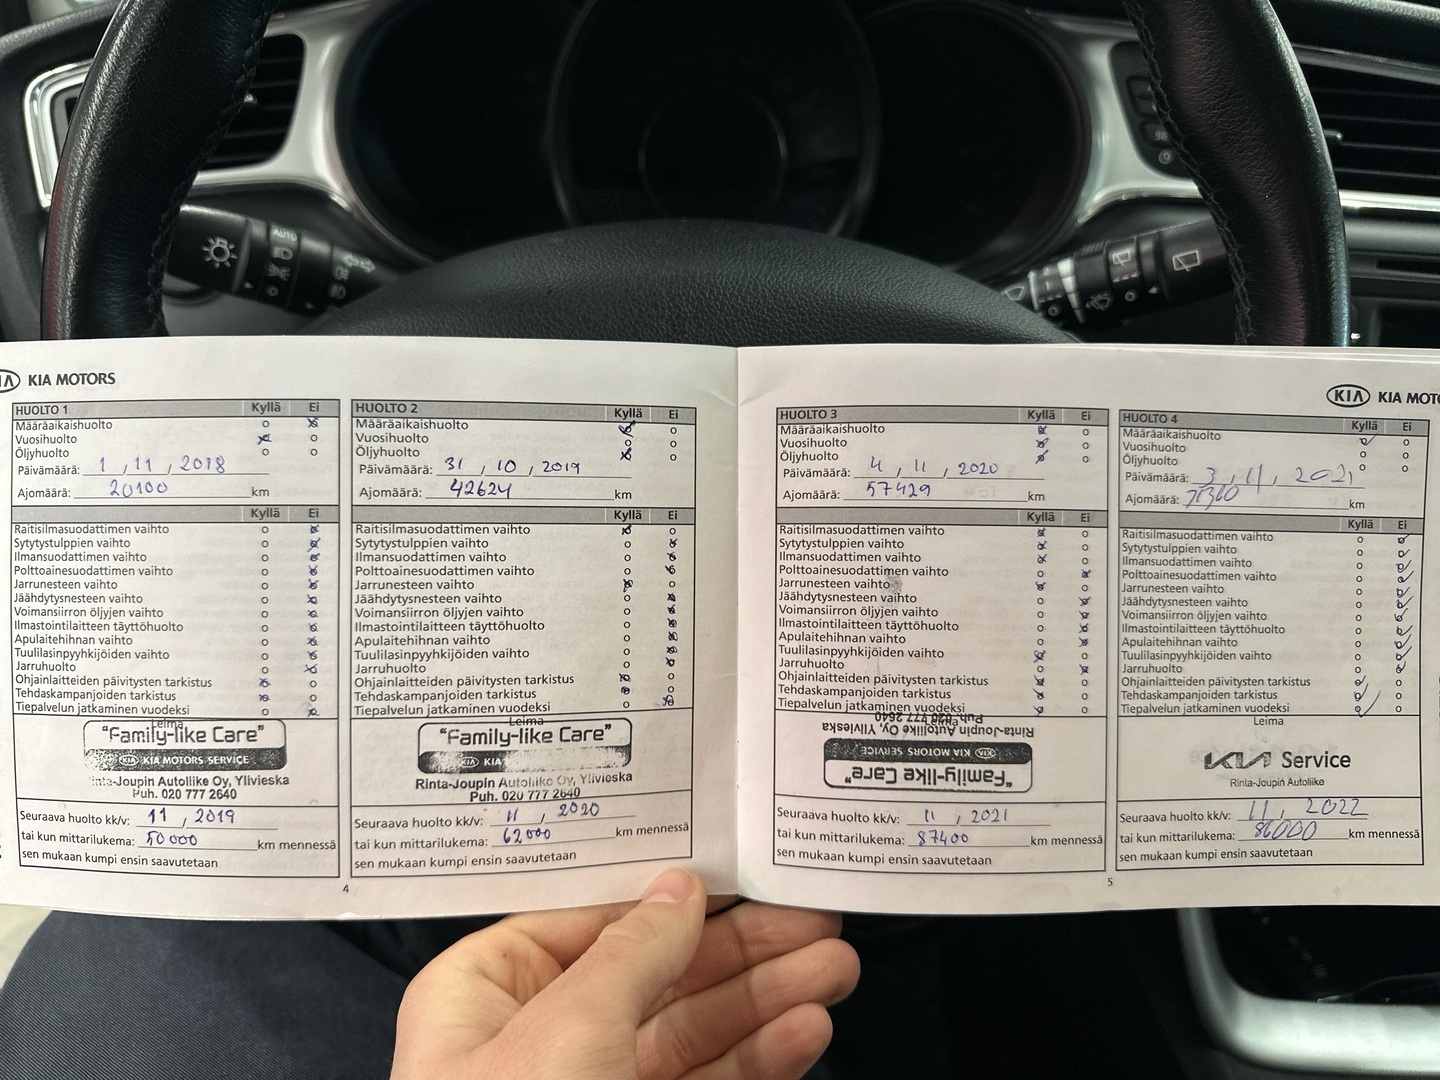 KIA MOTORS
HUOLTO 1 Kyllä Ei
Määräaikaishuolto
Vuosihuolto
Öljyhuolto
Päivämäärä: 1 , 11 , 2018
Ajomäärä: 20100 km
Kyllä Ei
Raitisilmasuodattimen vaihto
Sytytystulppien vaihto
Ilmansuodattimen vaihto
Polttoainesuodattimen vaihto
Jarrunesteen vaihto
Jäähdytysnesteen vaihto
Voimansiirron öljyjen vaihto
Ilmastointilaitteen täyttöhuolto
Apulaitehihnan vaihto
Tuulilasinpyyhkijöiden vaihto
Jarruhuolto
Ohjainlaitteiden päivitysten tarkistus
Tehdaskampanjoiden tarkistus
Tiepalvelun jatkaminen vuodeksi
Leima
"Family-like Care"
KIA MOTORS SERVICE
Rinta-Joupin Autoliike Oy, Ylivieska
Puh. 020 777 2640
Seuraava huolto kk/v: 11 , 2019
tai kun mittarilukema: 50000 km mennessä
sen mukaan kumpi ensin saavutetaan
HUOLTO 2 Kyllä Ei
Määräaikaishuolto
Vuosihuolto
Öljyhuolto
Päivämäärä: 31 , 10 , 2019
Ajomäärä: 42624 km
Kyllä Ei
Raitisilmasuodattimen vaihto
Sytytystulppien vaihto
Ilmansuodattimen vaihto
Polttoainesuodattimen vaihto
Jarrunesteen vaihto
Jäähdytysnesteen vaihto
Voimansiirron öljyjen vaihto
Ilmastointilaitteen täyttöhuolto
Apulaitehihnan vaihto
Tuulilasinpyyhkijöiden vaihto
Jarruhuolto
Ohjainlaitteiden päivitysten tarkistus
Tehdaskampanjoiden tarkistus
Tiepalvelun jatkaminen vuodeksi
Leima
"Family-like Care"
KIA
Rinta-Joupin Autoliike Oy, Ylivieska
Puh. 020 777 2640
Seuraava huolto kk/v: 11 , 2020
tai kun mittarilukema: 62000 km mennessä
sen mukaan kumpi ensin saavutetaan
4
KIA KIA MOTO
HUOLTO 3 Kyllä Ei
Määräaikaishuolto
Vuosihuolto
Öljyhuolto
Päivämäärä: 4 , 11 , 2020
Ajomäärä: 57429 km
Kyllä Ei
Raitisilmasuodattimen vaihto
Sytytystulppien vaihto
Ilmansuodattimen vaihto
Polttoainesuodattimen vaihto
Jarrunesteen vaihto
Jäähdytysnesteen vaihto
Voimansiirron öljyjen vaihto
Ilmastointilaitteen täyttöhuolto
Apulaitehihnan vaihto
Tuulilasinpyyhkijöiden vaihto
Jarruhuolto
Ohjainlaitteiden päivitysten tarkistus
Tehdaskampanjoiden tarkistus
Tiepalvelun jatkaminen vuodeksi
Leima
"Family-like Care"
KIA MOTORS SERVICE
Rinta-Joupin Autoliike Oy, Ylivieska
Puh. 020 777 2640
Seuraava huolto kk/v: 11 , 2021
tai kun mittarilukema: 87400 km mennessä
sen mukaan kumpi ensin saavutetaan
HUOLTO 4 Kyllä Ei
Määräaikaishuolto
Vuosihuolto
Öljyhuolto
Päivämäärä: 3 , 11 , 2021
Ajomäärä: 71360 km
Kyllä Ei
Raitisilmasuodattimen vaihto
Sytytystulppien vaihto
Ilmansuodattimen vaihto
Polttoainesuodattimen vaihto
Jarrunesteen vaihto
Jäähdytysnesteen vaihto
Voimansiirron öljyjen vaihto
Ilmastointilaitteen täyttöhuolto
Apulaitehihnan vaihto
Tuulilasinpyyhkijöiden vaihto
Jarruhuolto
Ohjainlaitteiden päivitysten tarkistus
Tehdaskampanjoiden tarkistus
Tiepalvelun jatkaminen vuodeksi
Leima
KIA Service
Rinta-Joupin Autoliike
Seuraava huolto kk/v: 11 , 2022
tai kun mittarilukema: 86000 km mennessä
sen mukaan kumpi ensin saavutetaan
5
AUTO